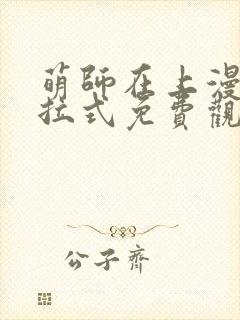 萌師在上漫
拉式免費觀
公子齊